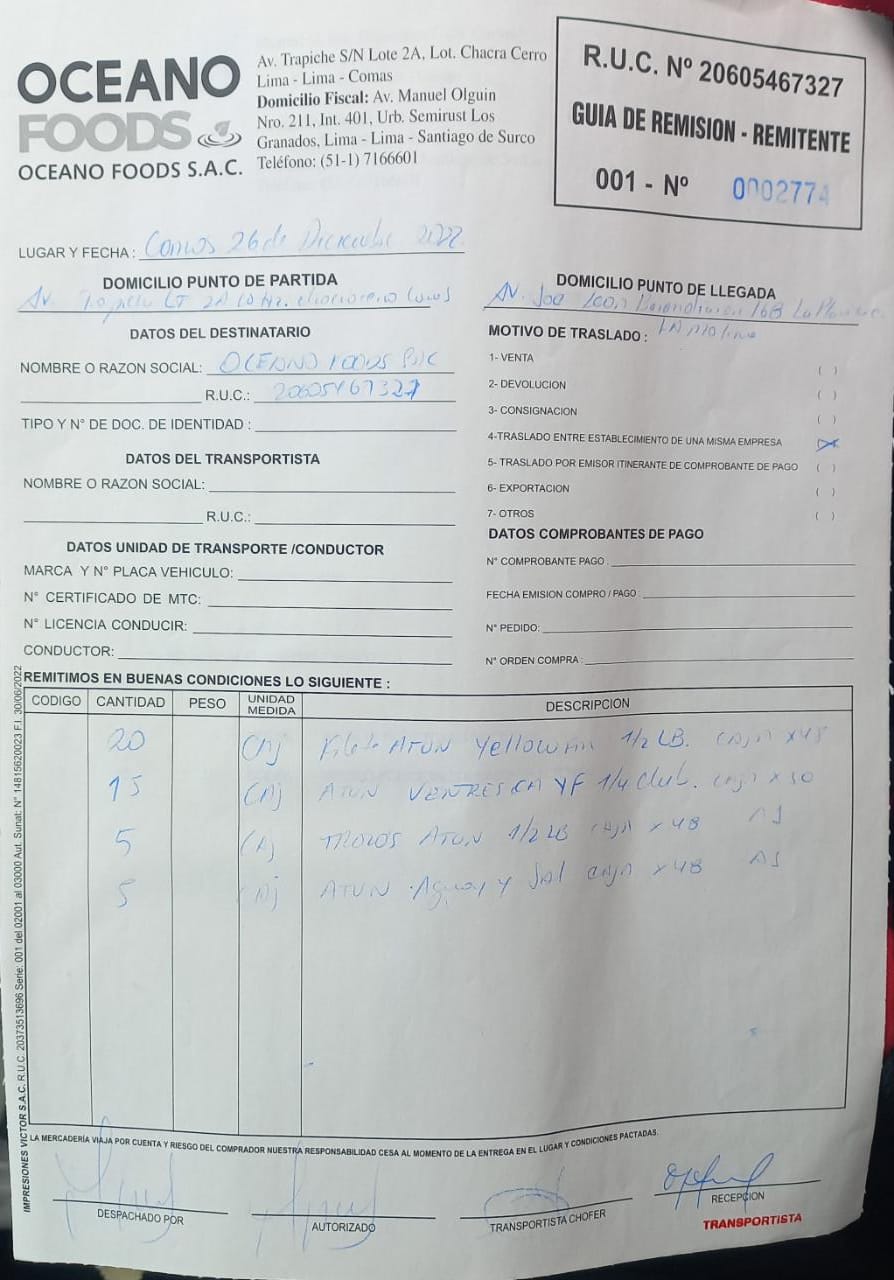 OCEANO
FOODS
OCEANO FOODS S.A.C.
Av. Trapiche S/N Lote 2A, Lot. Chacra Cerro
Lima - Lima - Comas
Domicilio Fiscal: Av. Manuel Olguin
Nro. 211, Int. 401, Urb. Semirust Los
Granados, Lima - Lima - Santiago de Surco
Teléfono: (51-1) 7166601
R.U.C. Nº 20605467327
GUIA DE REMISION - REMITENTE
001 - Nº 0002774
LUGAR Y FECHA : Comas 26 de Diciembre 2022
DOMICILIO PUNTO DE PARTIDA
Av.
DOMICILIO PUNTO DE LLEGADA
AV.
DATOS DEL DESTINATARIO
NOMBRE O RAZON SOCIAL: OCEANO FOODS
R.U.C.: 20605467327
TIPO Y N° DE DOC. DE IDENTIDAD :
DATOS DEL TRANSPORTISTA
NOMBRE O RAZON SOCIAL:
R.U.C.:
DATOS UNIDAD DE TRANSPORTE /CONDUCTOR
MARCA Y N° PLACA VEHICULO:
N° CERTIFICADO DE MTC:
N° LICENCIA CONDUCIR:
CONDUCTOR:
MOTIVO DE TRASLADO : LA Molina
1- VENTA ( )
2- DEVOLUCION ( )
3- CONSIGNACION ( )
4-TRASLADO ENTRE ESTABLECIMIENTO DE UNA MISMA EMPRESA
5- TRASLADO POR EMISOR ITINERANTE DE COMPROBANTE DE PAGO ( )
6- EXPORTACION ( )
7- OTROS ( )
DATOS COMPROBANTES DE PAGO
N° COMPROBANTE PAGO :
FECHA EMISION COMPRO / PAGO :
N° PEDIDO:
N° ORDEN COMPRA :
REMITIMOS EN BUENAS CONDICIONES LO SIGUIENTE :
CODIGO CANTIDAD PESO UNIDAD MEDIDA DESCRIPCION
20 CAJ Filete ATUN Yellowfin 1/2 LB. CAJA x48
15 CAJ ATUN VENTRESCA YF 1/4 Club. CAJA x 50
5 CAJ TROZOS ATUN 1/2 LB CAJA x 48
5 CAJ ATUN Agua y Sal CAJA x 48
LA MERCADERÍA VIAJA POR CUENTA Y RIESGO DEL COMPRADOR NUESTRA RESPONSABILIDAD CESA AL MOMENTO DE LA ENTREGA EN EL LUGAR Y CONDICIONES PACTADAS.
DESPACHADO POR
AUTORIZADO
TRANSPORTISTA CHOFER
RECEPCION
TRANSPORTISTA
IMPRESIONES VICTOR S.A.C. R.U.C. 20373513696 Serie: 001 del 02001 al 03000 Aut. Sunat: N° 14815620023 F.I. 30/06/2022